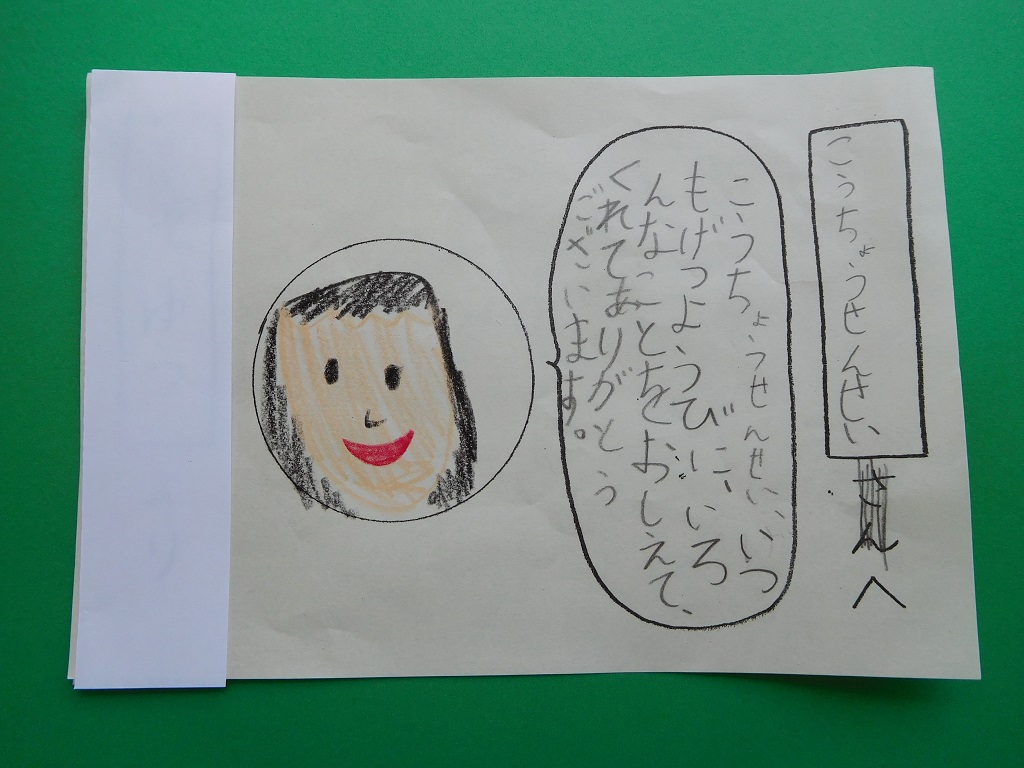 こうちょうせんせいへ
こうちょうせんせい、いつ
もげつようびに、いろ
んなことをおしえて、
くれてありがとう
ございます。